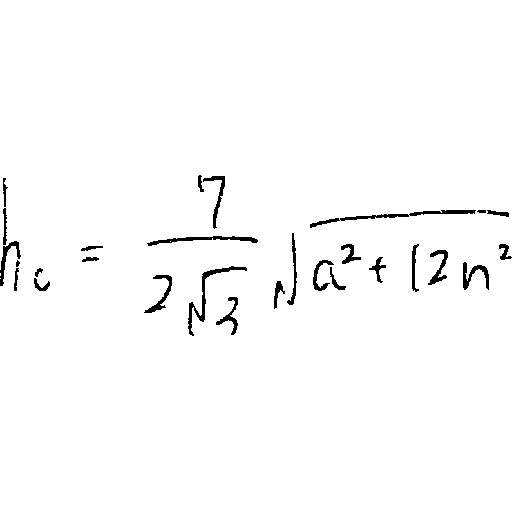 h_c = \frac{7}{2\sqrt{3}} \sqrt{a^2 + 12n^2}